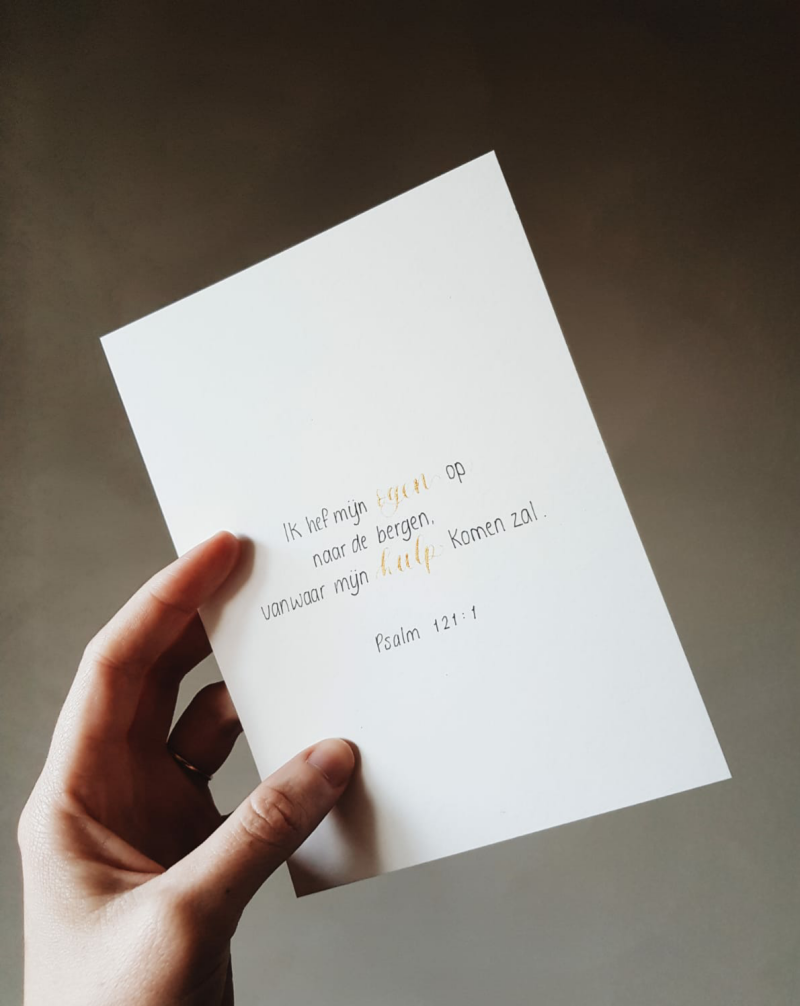 Ik hef mijn ogen op
naar de bergen,
vanwaar mijn hulp komen zal.
Psalm 121:1